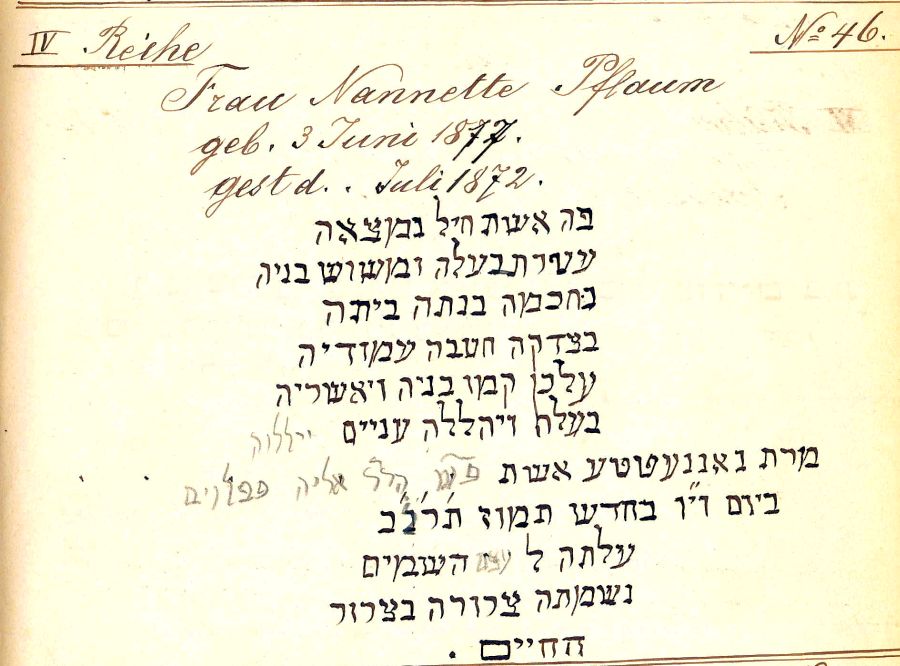 IV Reihe No 46.
Frau Nannette Pflaum
geb. 3 Juni 1877.
gest d. . Juli 1872.
פה אשת חיל נמצאה
עטרת בעלה ומשוש בניה
בחכמה בנתה ביתה
בצדקה חטבה עמודיה
על כן קמו בניה ויאשריה
בעלה ויהללה עניים יללוה
מרת נאננעטטע אשת
ביום ו״ו בחדש תמוז תר״בב
עלתה ל השמים
נשמתה צרורה בצרור
החיים .